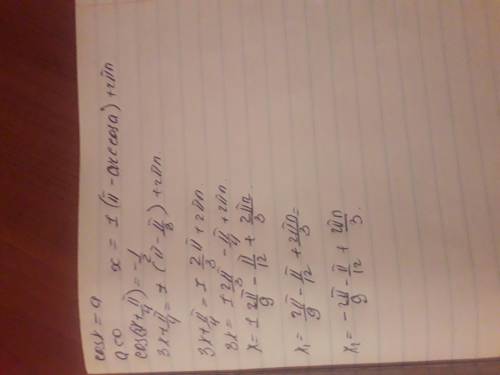 cosx = a
a<0 x = ±(π - arccosa) + 2πn
cos(3x+π/4) = -1/2
3x+π/4 = ±(π - π/3) + 2πn
3x+π/4 = ± 2π/3 + 2πn
3x = ± 2π/3 - π/4 + 2πn
x = ± 2π/9 - π/12 + 2πn/3
x₁ = 2π/9 - π/12 + 2πn/3
x₁ = - 2π/9 - π/12 + 2πn/3.